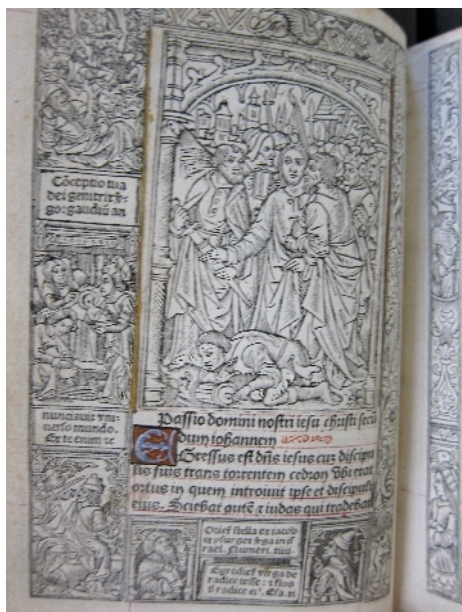 Cõceptio tua
dei genitrix ṽ-
go: gaudiũ an
nunciauit vni-
uerso mundo.
Ex te enim ie
Passio domini nostri iesu christi secũ
dum iohannem
EGressus est dñs iesus cuz discipu
lis suis trans torrentem cedron vbi erat
ortus in quem introiuit ipse et discipuli
eius. Sciebat autẽ z iudas qui tradebat
Oriet stella ex iacob
et cõsurget v̾ga in is
rael. Numeri.
Egrediet virga de
radice iesse: z flos
d̾ radice ei⁹. Esa.